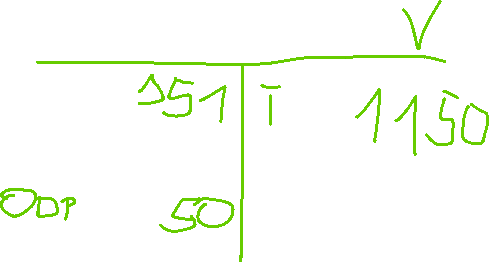 V
151 I 1150
ODP 50